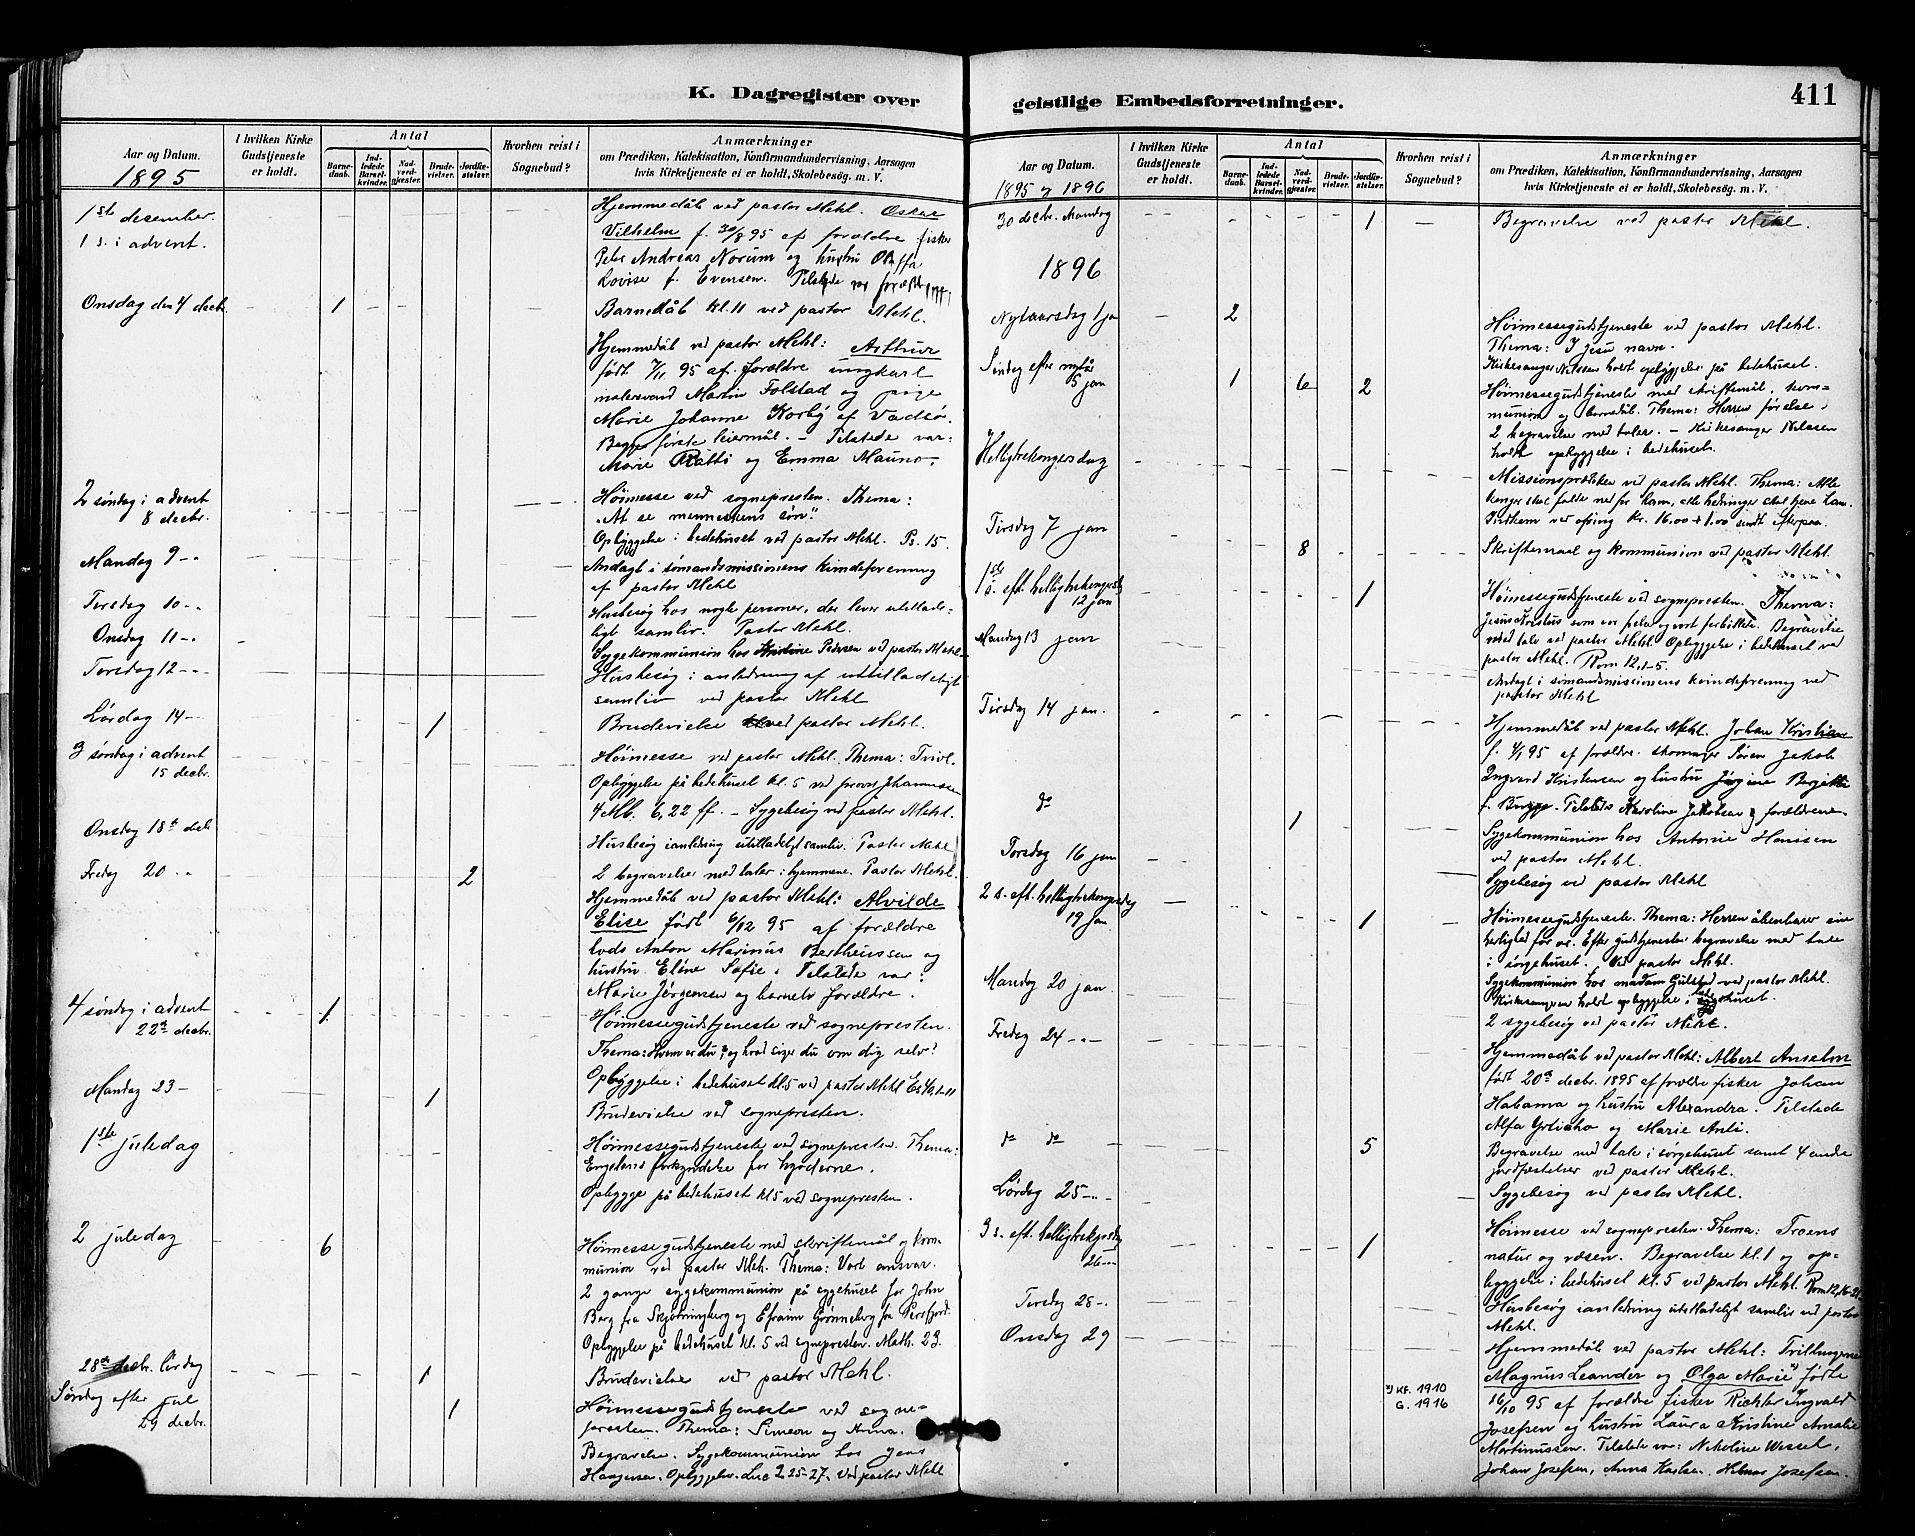 K. Dagregister over
Aar og Datum.
1895
I hvilken Kirke Gudstjeneste er holdt.
Antal
Barnedaab.
Indledede Barselkvinder.
Nadverdgjester.
Brudevielser.
Jordfæstelser.
Hvorhen reist i Sognebud?
Anmærkninger
om Prædiken, Katekisation, Konfirmandundervisning, Aarsagen
hvis Kirketjeneste ei er holdt, Skolebesøg. m. V.
1ste december.
1 s. i advent.
Hjemmedåb ved pastor Mehl. Oskar
Vilhelm f. 30/8 95 af forældre fisker
Peter Andreas Norum og hustru
Lovise f. Evensen. Tilstede
Onsdag den 4 decbr. 1
Barnedåb kl. 11 ved pastor Mehl.
Hjemmedåb ved pastor Mehl: Arthur
født 7/11 95 af forældre ungkarl
malersvend Martin Folstad og pige
Marie Johanne Korby af Vadsø.
Begges første leiermål. – Tilstede var:
Marie Ratti og Emma Mauno.
2 søndag i advent
8 decbr.
Høimesse ved sognepresten. Thema:
"At se menneskens søn".
Opbyggelse i bedehuset ved pastor Mehl. Ps. 15.
Mandag 9 – "
Andagt i sømandsmissionens kvindeforening
af pastor Mehl
Tirsdag 10 – "
Husbesøg hos nogle personer, der lever utillade-
ligt samliv. Pastor Mehl.
Onsdag 11 – "
Sygekommunion hos Kristine Pedersen ved pastor Mehl
Torsdag 12 – "
Husbesøg i anledning af utilladeligt
samliv ved pastor Mehl
Lørdag 14 – 1
Brudevielse ved pastor Mehl.
3 søndag i advent
15 decbr.
Høimesse ved pastor Mehl. Thema: Tvivl.
Opbyggelse på bedehuset kl. 5 ved provst Johannessen
4 Mb. 6,22 ff. – Sygebesøg ved pastor Mehl.
Onsdag 18de decb
Husbesøg i anledning utilladeligt samliv. Pastor Mehl
Fredag 20 " 2
2 begravelser med taler i hjemmene. Pastor Mehl.
Hjemmedåb ved pastor Mehl: Alvilde
Elise født 6/12 95 af forældre
lods Anton Marinus Bertheussen og
hustru Eline Sofie. Tilstede var:
Marie Jørgensen og barnets forældre.
4 søndag i advent
22de decbr. 1
Høimessegudstjeneste ved sognepresten.
Thema: Hvem er du? og hvad siger du om dig selv?
Opbyggelse i bedehuset kl. 5 ved pastor Mehl Es. 40,1-11
Mandag 23 – 1
Brudevielse ved sognepresten.
1ste juledag
Høimessegudstjeneste ved sognepresten. Thema:
Englens forkyndelse for hyrderne.
Opbygge på bedehuset kl. 5 ved sognepresten.
2 juledag 6
Høimessegudstjeneste med skriftemål og kom-
munion ved pastor Meh. Thema: Vort ansvar.
2 gange sygekommunion på sygehuset for John
Berg fra og Efraim Grønneberg fra Persfjord.
Opbyggelse på bedehuset kl. 5 ved sognepresten. Math. 23.
28de decbr. lørdag 1
Brudevielse ved pastor Mehl.
Søndag efter jul
29 decbr. 1
Høimessegudstjeneste ved sogne-
presten. Thema: Simeon og Anna.
Begravelse. Sygekommunion hos Jens
Haagensen. Opbyggelse. Luc 2,25-27. Ved pastor Mehl
geistlige Embedsforretninger.
411
Aar og Datum.
1895 og 1896
I hvilken Kirke Gudstjeneste er holdt.
Antal
Barnedaab.
Indledede Barselkvinder.
Nadverdgjester.
Brudevielser.
Jordfæstelser.
Hvorhen reist i Sognebud?
Anmærkninger
om Prædiken, Katekisation, Konfirmandundervisning, Aarsagen
hvis Kirketjeneste ei er holdt, Skolebesøg. m. V.
30 decbr. Mandag 1
Begravelse ved pastor Mehl.
1896
Nytaarsdag 1 jan 2
Høimessegudstjeneste ved pastor Mehl.
Thema: I Jesu navn.
Kirkesanger Nilssen holdt opbyggelse på bedehuset.
Søndag efter nytår
5 jan 1 6 2
Høimessegudstjeneste med skriftemål, kom-
munion og barnedåb. Thema: Herren førelse.
2 begravelser med taler. – Kirkesanger Nilssen
holdt opbyggelse i bedehuset.
Helligtrekongersdag
Missionsprædiken ved pastor Mehl. Thema: Alle
konger skal falde ned for ham, alle hedninger skal tjene ham.
Indkom ved ofring kr. 16,00 + 1,00 sendt efterpaa.
Tirsdag 7 jan 8
Skriftemaal og kommunion ved pastor Mehl.
1ste s. eft. helligtrekongersdg
12 jan 1
Høimessegudstjeneste ved sognepresten. Thema:
Jesus Kristus som vor frelse og vort forbillede. Begravelse
med tale ved pastor Mehl. Opbyggelse i bedehuset ved
pastor Mehl. Rom 12,1-5.
Mandag 13 jan
Andagt i sømandsmissionens kvindeforening ved
pastor Mehl
Tirsdag 14 jan.
Hjemmedåb ved pastor Mehl. Johan Kristian
f. 95 af forældre skomager Søren Jakob
Ingvard Kristensen og hustru Jørgine Bergitte
f. Tilstede Karoline Jakobsen og forældrene.
do 1
Sygekommunion hos Antonie Hansen
ved pastor Mehl.
Torsdag 16 jan
Sygebesøg ved pastor Mehl
2 s. eft. helligtrekongersdag
19 jan 1
Høimessegudstjeneste. Thema: Herren åbenbarer sin
herlighed for os. Efter gudstjenesten begravelse med tale
i sørgehuset. Ved pastor Mehl.
Sygekommunion hos madam Gulstad ved pastor Mehl.
Kirkesangeren holdt opbyggelse i bedehuset.
Mandag 20 jan.
2 sygebesøg ved pastor Mehl.
Fredag 24 – "
Hjemmedåb ved pastor Mehl: Albert Anselm
født 20de decbr. 1895 af forældre fisker Johan
Habama og hustru Alexandra. Tilstede
Alfa og Marie Anti.
do do 5
Begravelse med tale i sørgehuset samt 4 andre
jordfæstelser ved pastor Mehl.
Lørdag 25 – "
Sygebesøg ved pastor Mehl.
3 s. eft. helligtrekgsdag
26 – 1
Høimesse ved sognepresten. Thema: Troens
natur og væsen. Begravelse kl. 1 og op-
byggelse i bedehuset kl. 5 ved pastor Mehl. Rom 12,16-21
Tirsdag 28 –
Husbesøg i anledning utilladeligt samliv ved pastor
Mehl.
Onsdag 29
Hjemmedåb ved pastor Mehl: Tvillingerne
Magnus Leander og Olga Marie *) fødte
16/10 95 af forældre fisker Richter Ingvald
Josefsen og hustru Laura Kristine Amalie
Martinussen. Tilstede var: Nikoline Wessel,
Johan Josefsen, Anna Karlsen. Josefsen.
*) Kf. 1910
G. 1916